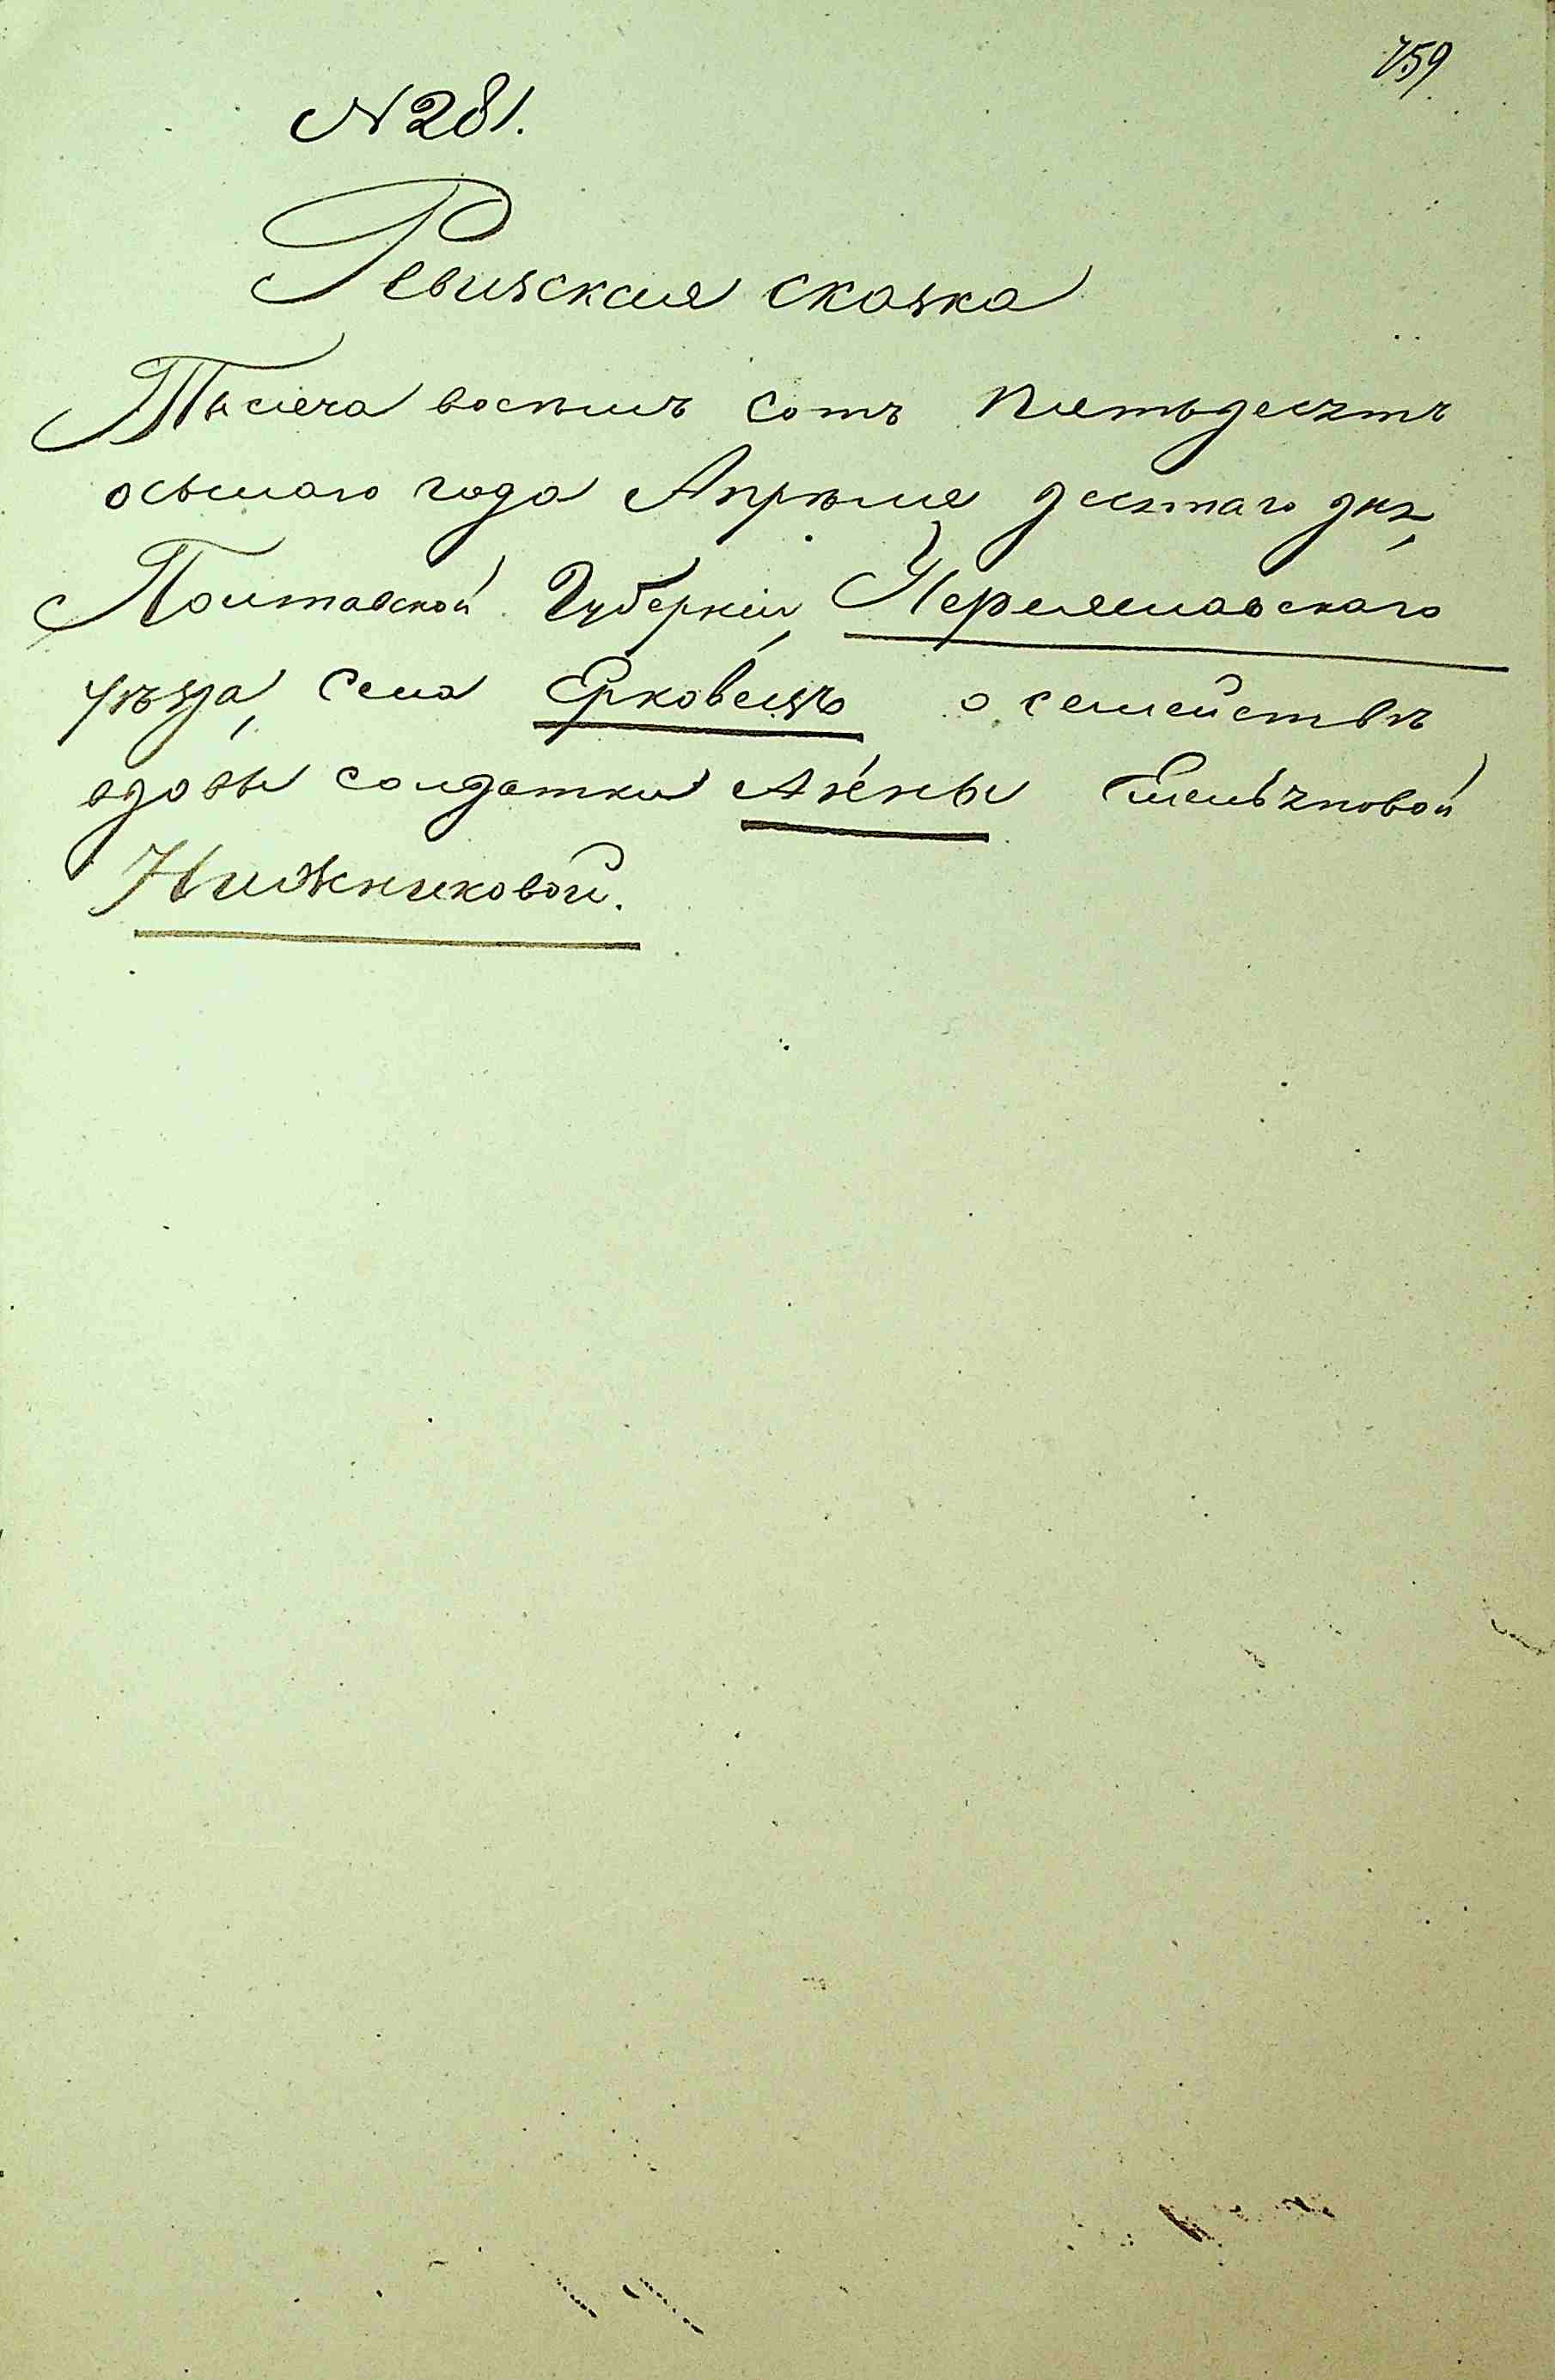 759
N 281.
Ревизская сказка
Тысяча восемь сотъ пятьдесятъ
осьмаго года Апрѣля десятаго дня,
Полтавской Губерніи, Переяславскаго
уѣзда, села Ерковецъ о семействѣ
вдовы солдатки Анны Емельяновой
Нижниковой.